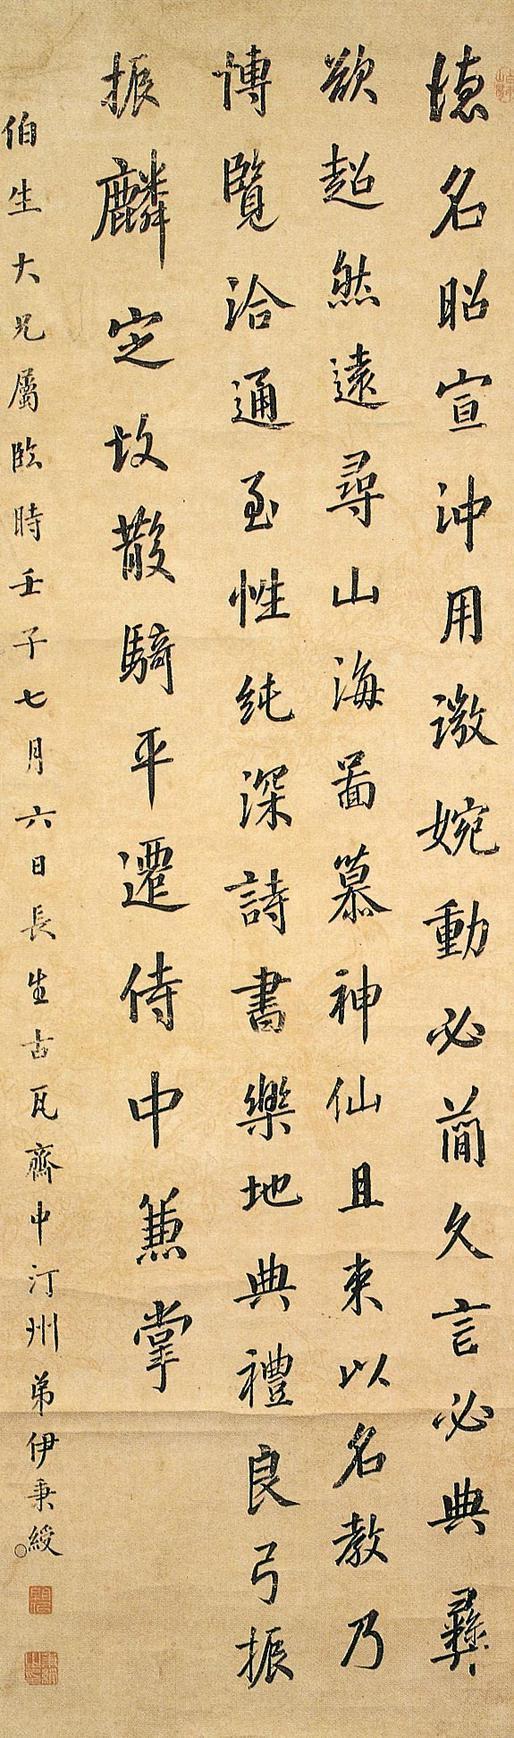 德名昭宣沖用激婉動必簡久言必典彝
欲超然遠尋山海啚慕神仙且束以名教乃
博覽洽通至性純深詩書樂地典禮良弓振
振麟定故散騎平遷侍中兼掌
伯生大兄屬臨時壬子七月六日長生古瓦齋中汀州弟伊秉綬